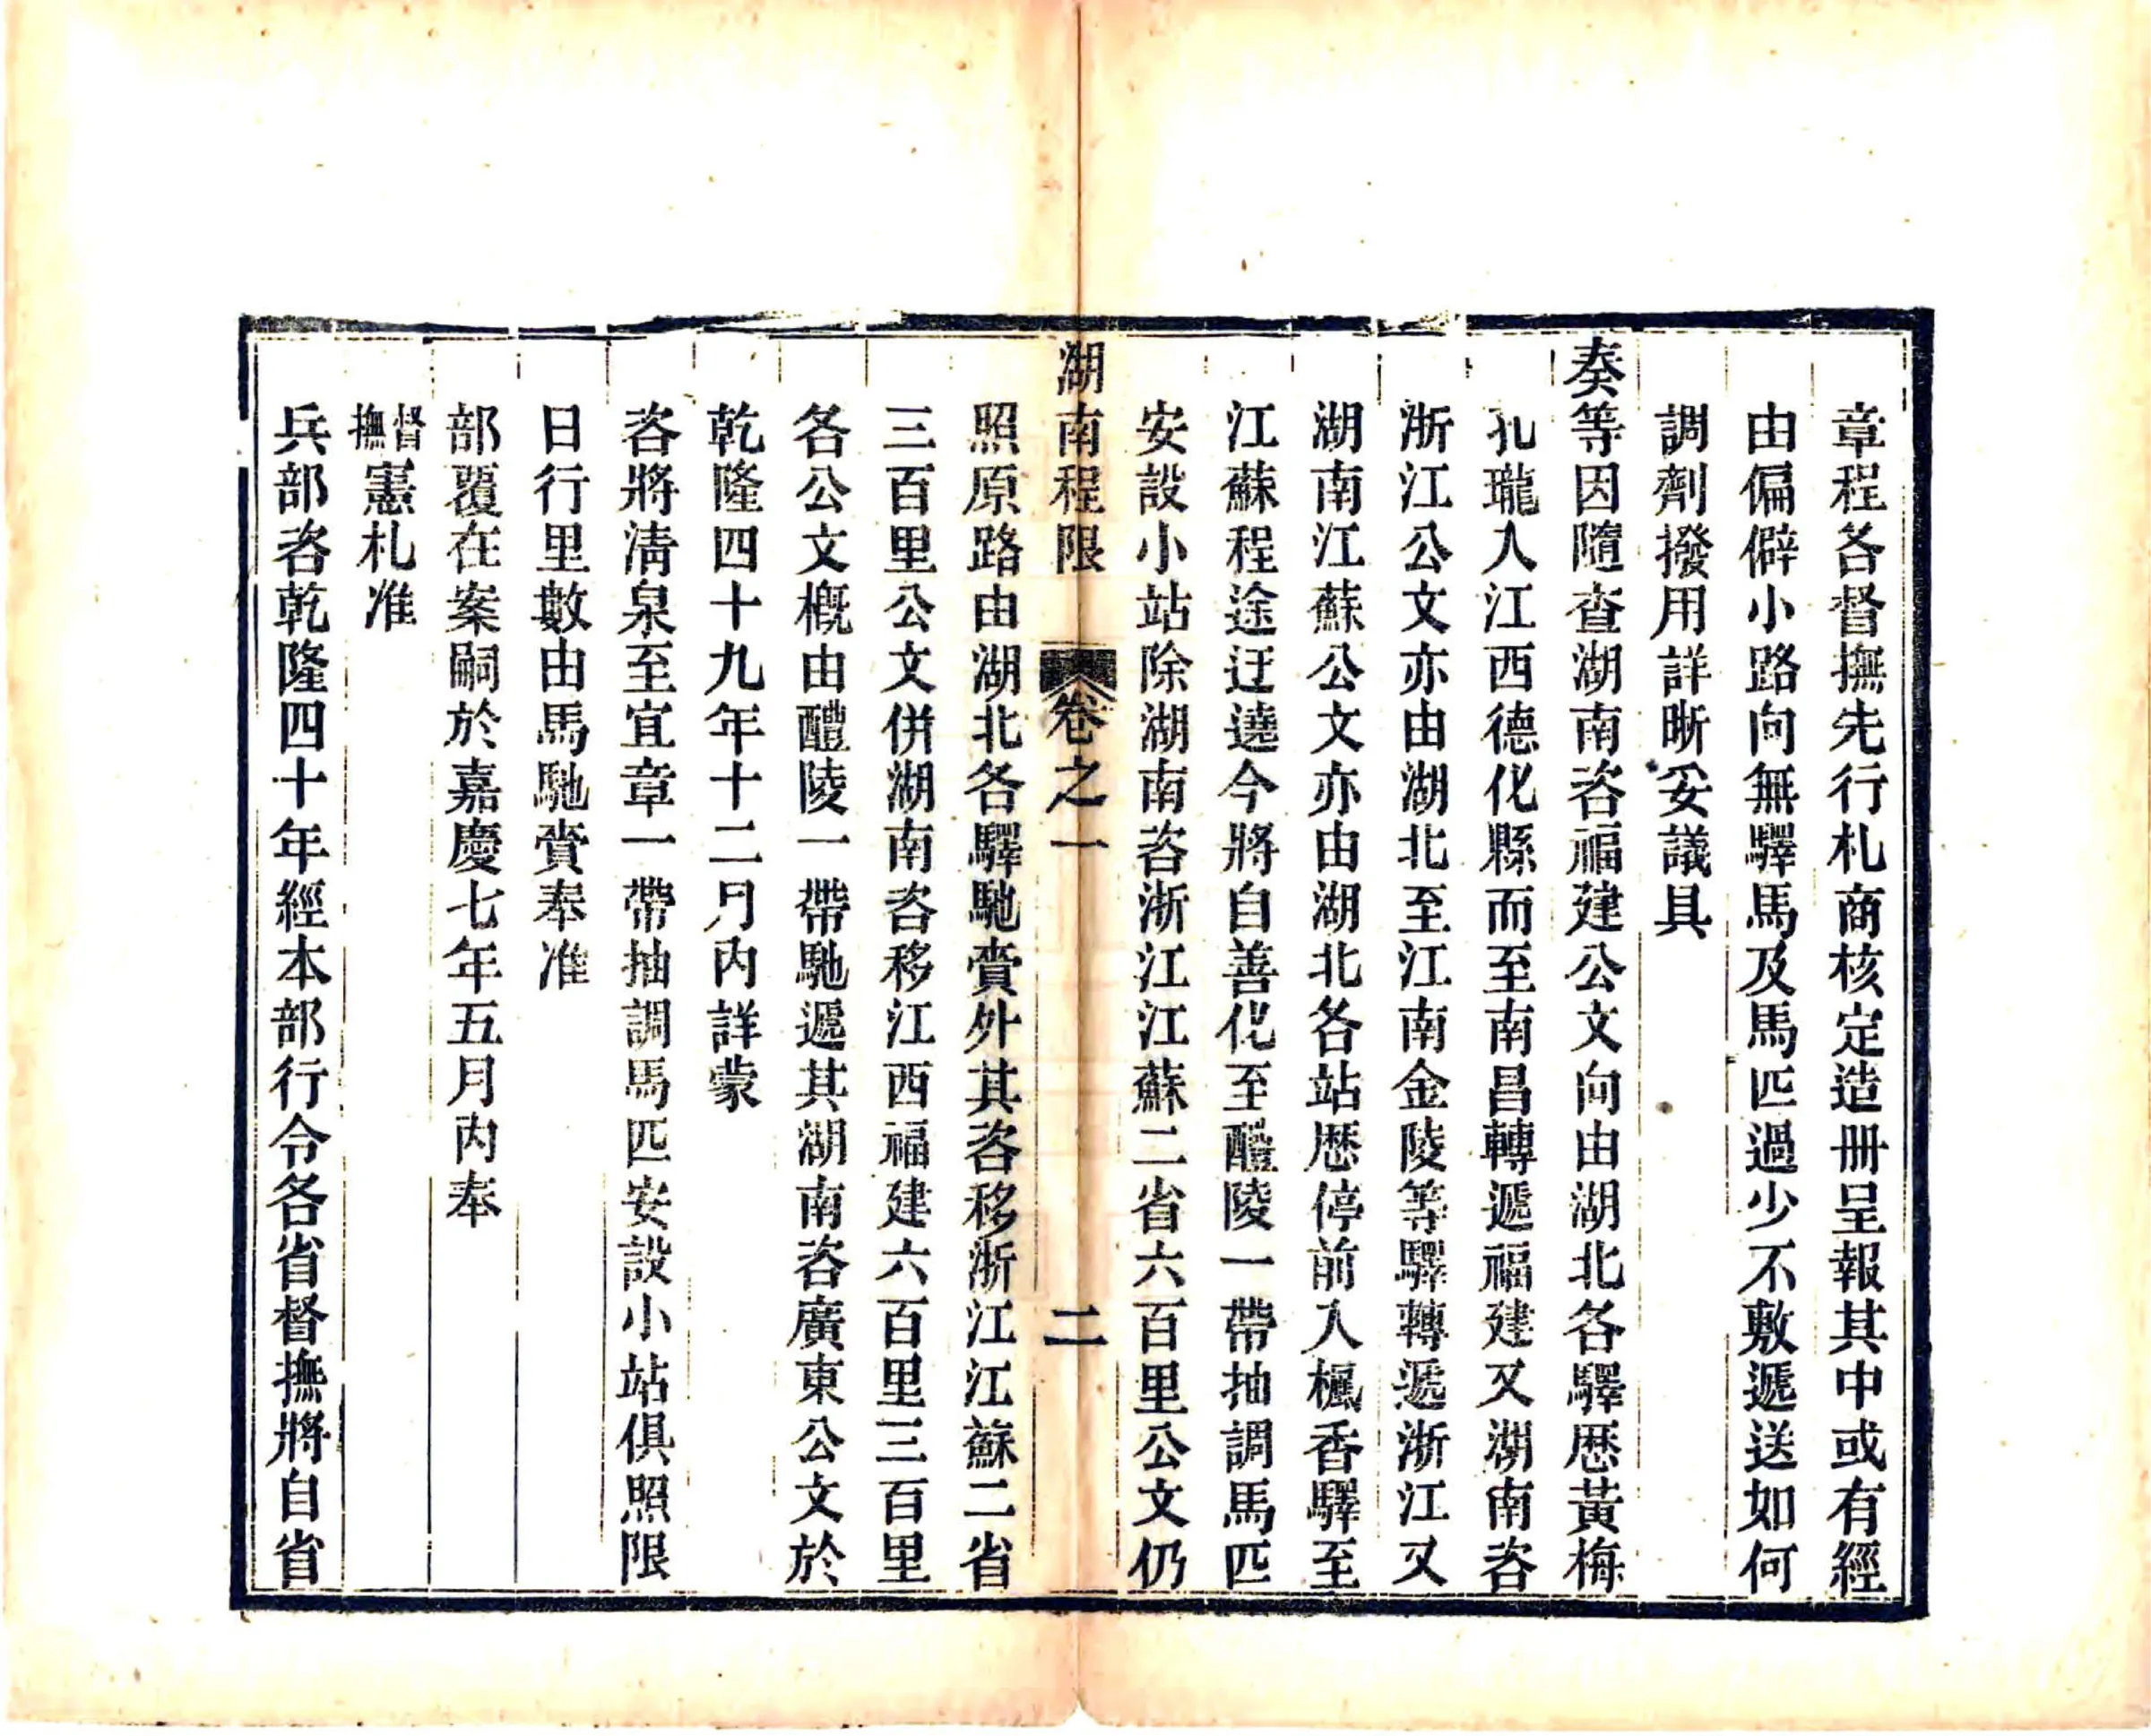 章程各督撫先行札商核定造冊呈報其中或有經
由偏僻小路向無驛馬及馬匹過少不敷遞送如何
調劑撥用詳晰妥議具
奏等因隨查湖南咨福建公文向由湖北各驛歷黃梅
孔瓏入江西德化縣而至南昌轉遞福建又湖南咨
浙江公文亦由湖北至江南金陵等驛轉遞浙江又
湖南江蘇公文亦由湖北各站歷停前入楓香驛至
江蘇程途迂遶今將自善化至醴陵一帶抽調馬匹
安設小站除湖南咨浙江江蘇二省六百里公文仍
湖南程限 卷之一 二
照原路由湖北各驛馳賫外其咨移浙江江蘇二省
三百里公文併湖南咨移江西福建六百里三百里
各公文概由醴陵一帶馳遞其湖南咨廣東公文於
乾隆四十九年十二月內詳蒙
咨將清泉至宜章一帶抽調馬匹安設小站俱照限
日行里數由馬馳賫奉准
部覆在案嗣於嘉慶七年五月內奉
督撫憲札准
兵部咨乾隆四十年經本部行令各省督撫將自省